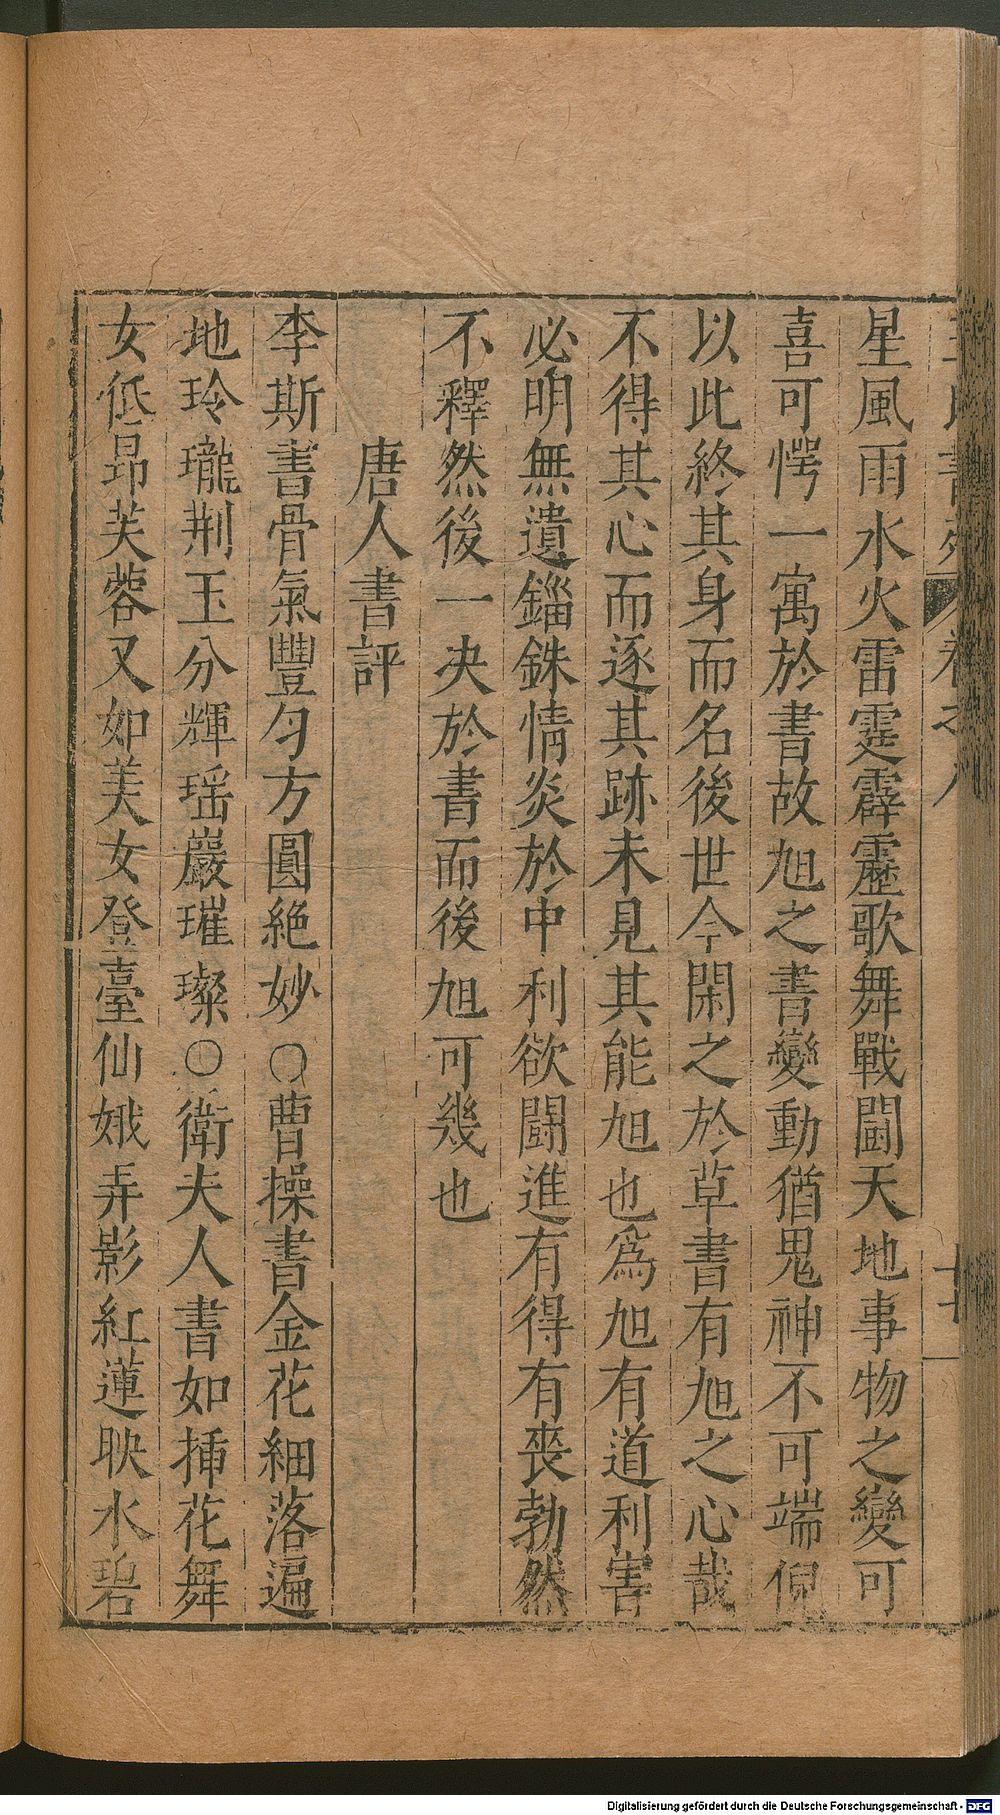 星風雨水火雷霆霹靂歌舞戰鬪天地事物之變可
喜可愕一寓於書故旭之書變動猶鬼神不可端倪
以此終其身而名後世今閑之於草書有旭之心哉
不得其心而逐其跡未見其能旭也爲旭有道利害
必明無遺錙銖情炎於中利欲鬪進有得有喪勃然
不釋然後一决於書而後旭可幾也
唐人書評
李斯書骨氣豐匀方圓絶妙○曹操書金花細落遍
地玲瓏荆玉分輝瑶巖璀璨○衛夫人書如揷花舞
女低昻芙蓉又如美女登臺仙娥弄影紅蓮映水碧
Digitalisierung gefördert durch die Deutsche Forschungsgemeinschaft - DFG